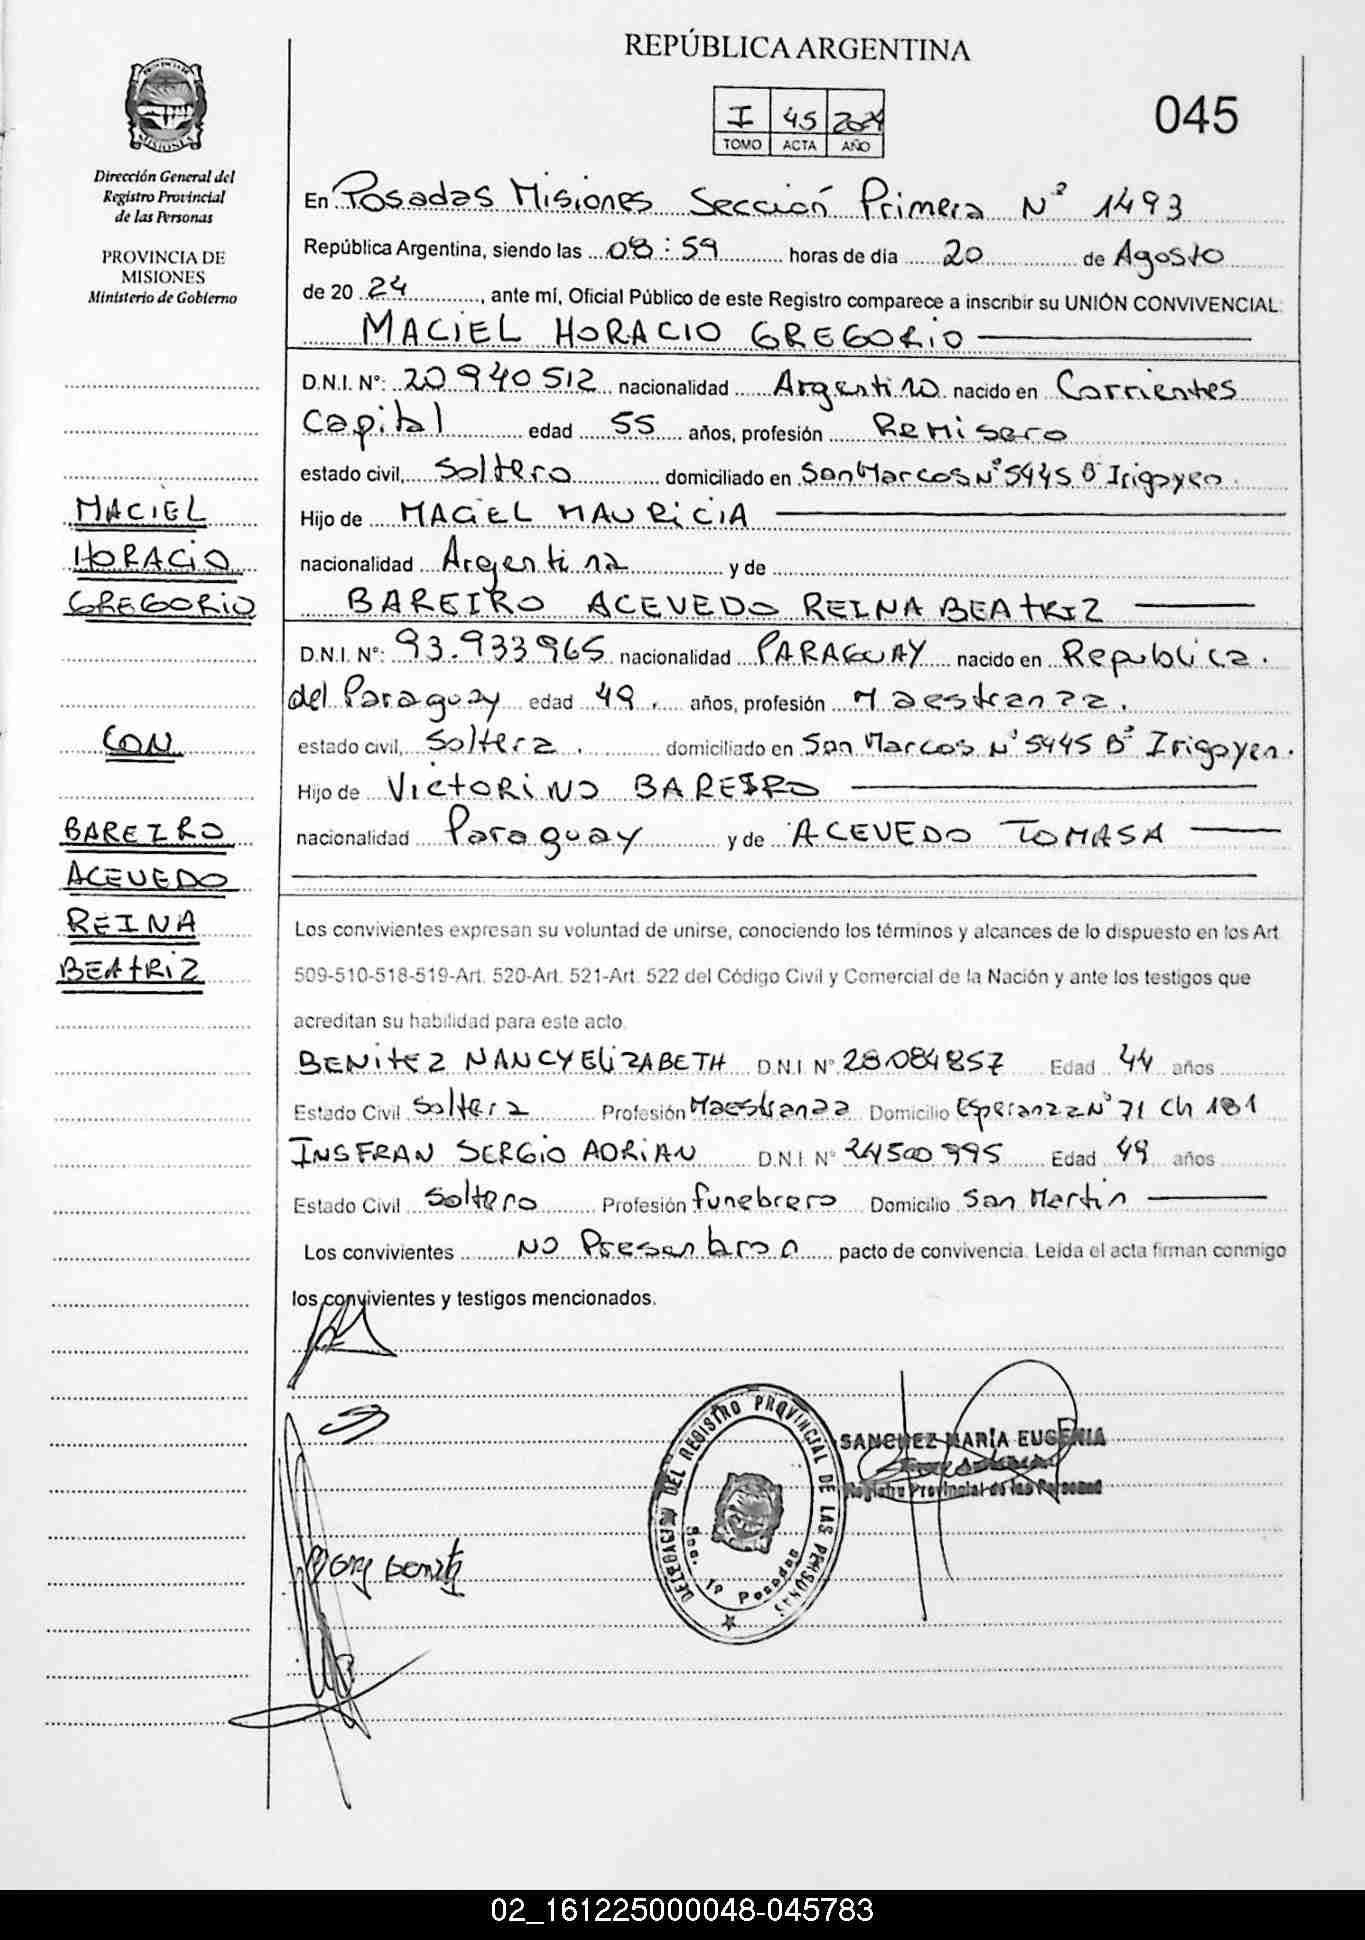 REPÚBLICA ARGENTINA
I 45 2024
TOMO ACTA AÑO
045
PROVINCIA DE
MISIONES
Dirección General del
Registro Provincial
de las Personas
PROVINCIA DE
MISIONES
Ministerio de Gobierno
En Posadas Misiones Sección Primera Nº 1493
República Argentina, siendo las 08:59 horas de dia 20 de Agosto
de 20 24, ante mí, Oficial Público de este Registro comparece a inscribir su UNIÓN CONVIVENCIAL:
MACIEL HORACIO GREGORIO
D.N.I. Nº: 20940512 nacionalidad Argentino nacido en Corrientes
Capital edad 55 años, profesión Remisero
estado civil, Soltero domiciliado en San Marcos Nº 5445 Bº Irigoyen.
Hijo de MACIEL MAURICIA
nacionalidad Argentina y de
BAREIRO ACEVEDO REINA BEATRIZ
D.N.I. Nº: 93.933965 nacionalidad PARAGUAY nacido en Republica.
del Paraguay edad 49, años, profesión Maestranza.
estado civil, Soltera. domiciliado en San Marcos Nº 5445 Bº Irigoyen.
Hijo de VICTORINO BAREIRO
nacionalidad Paraguay y de ACEVEDO TOMASA
MACIEL
HORACIO
GREGORIO
CON
BAREIRO
ACEVEDO
REINA
BEATRIZ
Los convivientes expresan su voluntad de unirse, conociendo los términos y alcances de lo dispuesto en los Art.
509-510-518-519-Art. 520-Art. 521-Art. 522 del Código Civil y Comercial de la Nación y ante los testigos que
acreditan su habilidad para este acto.
BENITEZ NANCY ELIZABETH D.N.I. Nº 28.084857 Edad 44 años
Estado Civil Soltera Profesión Maestranza Domicilio Esperanza Nº 71 Ch 181
INSFRAN SERGIO ADRIAN D.N.I. Nº 24500995 Edad 49 años
Estado Civil Soltero Profesión funebrero Domicilio San Martin
Los convivientes NO Presentaron pacto de convivencia. Leida el acta firman conmigo
los convivientes y testigos mencionados.
DELEGACION DEL REGISTRO PROVINCIAL DE LAS PERSONAS
Sec. 1ª Posadas
SANCHEZ MARÍA EUGENIA
Registro Provincial de las Personas
Benitez
02_161225000048-045783